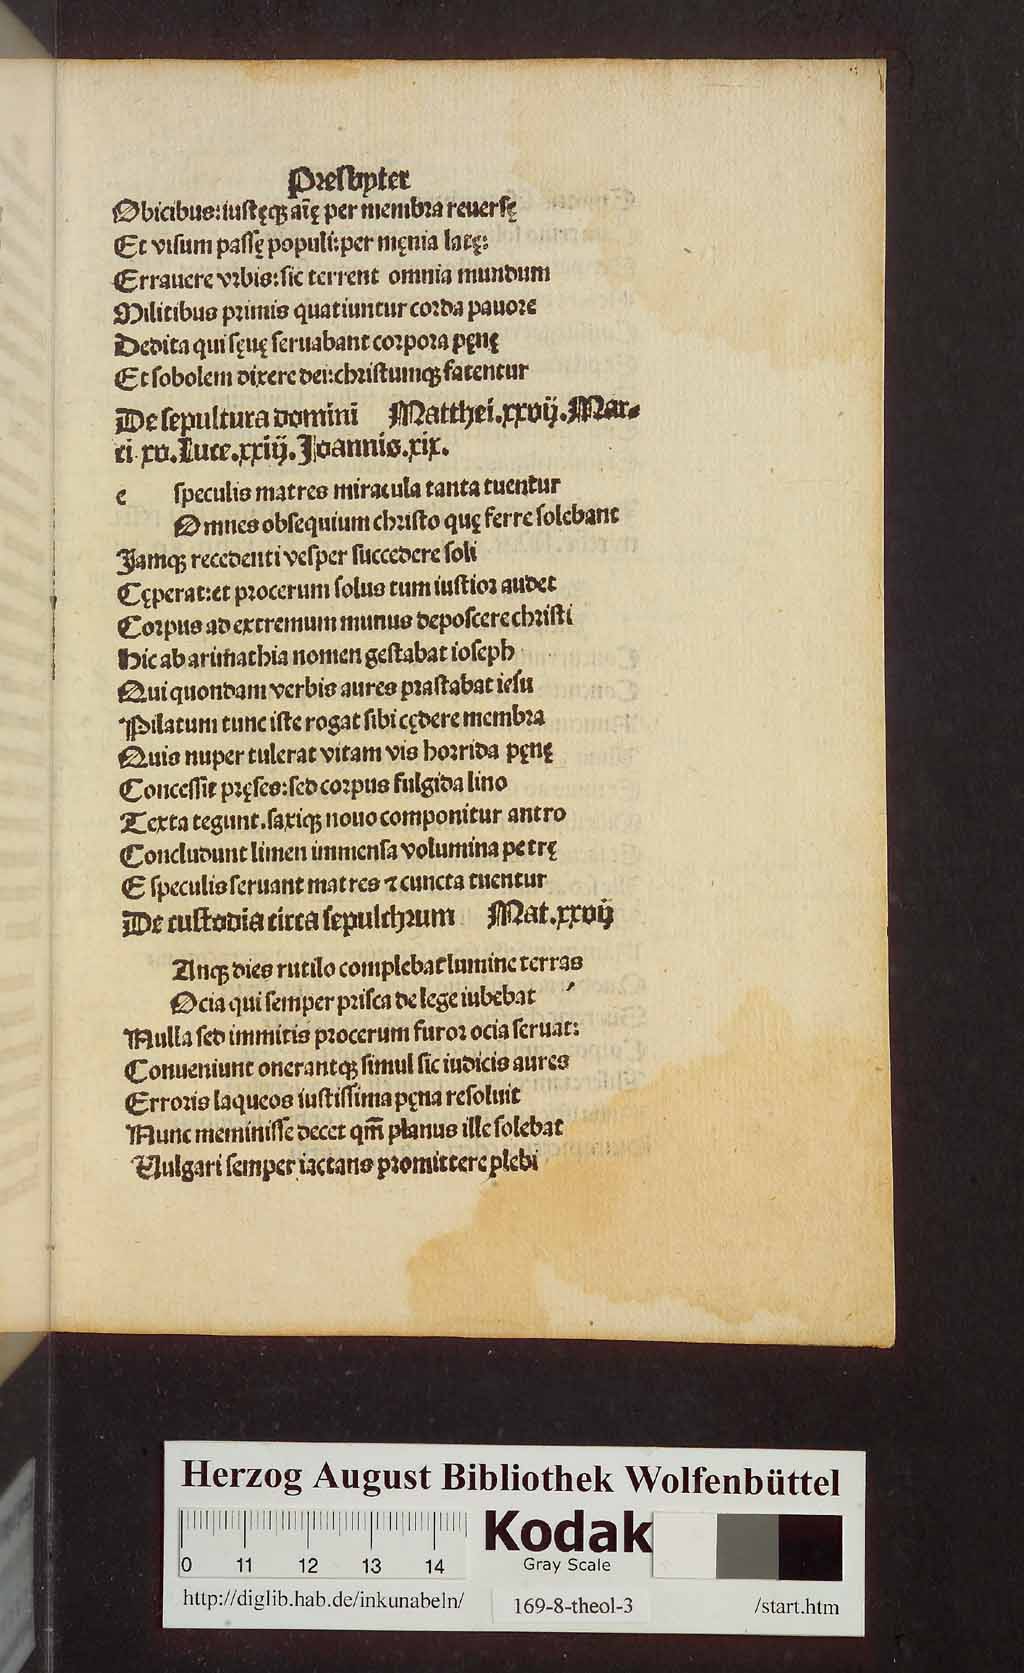 Presbyter
Obicibus: iustęq; aīę per membra reuersę
Et visum passę populi: per męnia latę:
Errauere vrbis: sic terrent omnia mundum
Militibus primis quatiuntur corda pauore
Dedita qui sęuę seruabant corpora pęnę
Et sobolem dixere dei: christumq; fatentur
De sepultura domini Matthei. xxvij. Mar-
ci xv. Luce. xxiij. Joannis. xix.
e speculis matres miracula tanta tuentur
Omnes obsequium christo quę ferre solebant
Jamq; recedenti vesper succedere soli
Cęperat: et procerum solus tum iustior audet
Corpus ad extremum munus deposcere christi
Hic ab arimathia nomen gestabat ioseph
Qui quondam verbis aures prastabat iesu
Pilatum tunc iste rogat sibi cędere membra
Quis nuper tulerat vitam vis horrida pęnę
Concessit pręses: sed corpus fulgida lino
Texta tegunt. saxiq; nouo componitur antro
Concludunt limen immensa volumina petrę
E speculis seruant matres ⁊ cuncta tuentur
De custodia circa sepulchrum Mat. xxvij
Inq; dies rutilo complebat lumine terras
Ocia qui semper prisca de lege iubebat
Nulla sed immitis procerum furor ocia seruat:
Conueniunt onerantq; simul sic iudicis aures
Erroris laqueos iustissima pęna resoluit
Nunc meminisse decet qm̄ planus ille solebat
Vulgari semper iactans promittere plebi
Herzog August Bibliothek Wolfenbüttel
0 11 12 13 14
Kodak
Gray Scale
http://diglib.hab.de/inkunabeln/ 169-8-theol-3 /start.htm